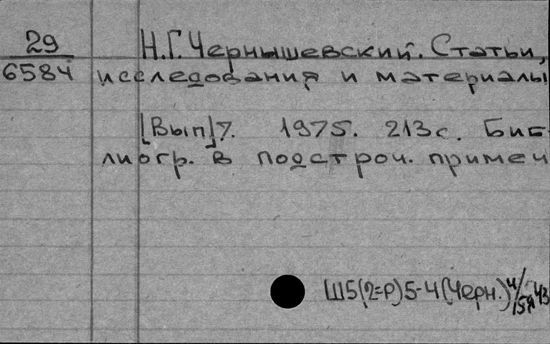 29
6584
Н.Г.Чернышевский. Статьи,
исследования и материалы
[Вып]7. 1975. 213с. Биб-
лиогр. в подстроч. примеч
Ш5(2=Р)5-4(Черн.)4/